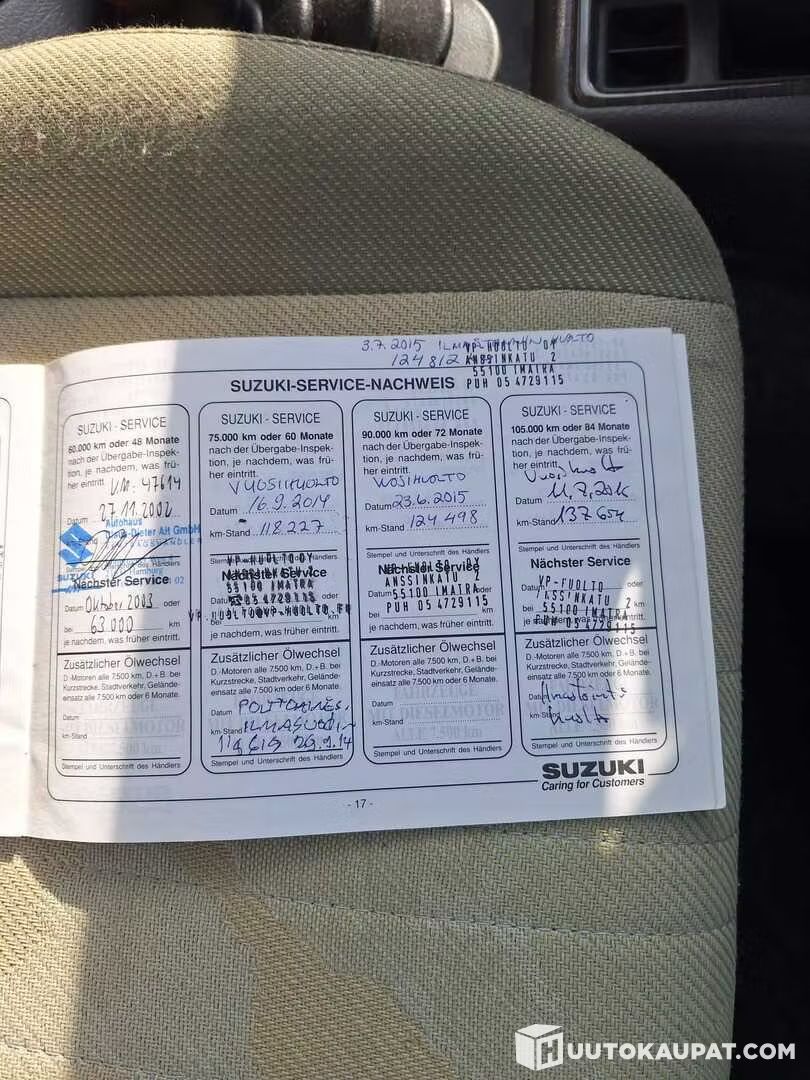 3.7.2015 ILMASTOINNIN HUOLTO
124 812
VP-HUOLTO OY
ANSSINKATU 2
55100 IMATRA
PUH 05 4729115
SUZUKI-SERVICE-NACHWEIS
SUZUKI - SERVICE
60.000 km oder 48 Monate
nach der Übergabe-Inspek-
tion, je nachdem, was frü-
her eintritt.
47614
Datum 27.11.2002
Autohaus
Hans-Dieter Alt GmbH
Hamburg
SUZUKI
Nächster Service
Datum Oktober 2003 oder
bei 63000 km
je nachdem, was früher eintritt.
Zusätzlicher Ölwechsel
D.-Motoren alle 7.500 km, D.+B. bei
Kurzstrecke, Stadtverkehr, Gelände-
einsatz alle 7.500 km oder 6 Monate.
Datum
km-Stand
Stempel und Unterschrift des Händlers
SUZUKI - SERVICE
75.000 km oder 60 Monate
nach der Übergabe-Inspek-
tion, je nachdem, was frü-
her eintritt.
VUOSIHUOLTO
Datum 16.9.2014
km-Stand 118227
VP-HUOLTO OY
ANSSINKATU 2
55100 IMATRA
05 4729115
VP.HUOLTO@VP-HUOLTO.FI
Nächster Service
je nachdem, was früher eintritt.
Zusätzlicher Ölwechsel
D.-Motoren alle 7.500 km, D.+B. bei
Kurzstrecke, Stadtverkehr, Gelände-
einsatz alle 7.500 km oder 6 Monate.
Datum
km-Stand ILMASUODIN
Stempel und Unterschrift des Händlers
SUZUKI - SERVICE
90.000 km oder 72 Monate
nach der Übergabe-Inspek-
tion, je nachdem, was frü-
her eintritt.
VUOSIHUOLTO
Datum 23.6.2015
km-Stand 124 498
Stempel und Unterschrift des Händlers
Nächster Service
ANSSINKATU 2
55100 IMATRA
PUH 05 4729115
je nachdem, was früher eintritt.
Zusätzlicher Ölwechsel
D.-Motoren alle 7.500 km, D.+B. bei
Kurzstrecke, Stadtverkehr, Gelände-
einsatz alle 7.500 km oder 6 Monate.
Datum
km-Stand
Stempel und Unterschrift des Händlers
SUZUKI - SERVICE
105.000 km oder 84 Monate
nach der Übergabe-Inspek-
tion, je nachdem, was frü-
her eintritt.
Vuosihuolto
Datum
km-Stand 137654
Stempel und Unterschrift des Händlers
Nächster Service
VP-HUOLTO
ANSSINKATU 2
55100 IMATRA
Zusätzlicher Ölwechsel
D.-Motoren alle 7.500 km, D.+B. bei
Kurzstrecke, Stadtverkehr, Gelände-
einsatz alle 7.500 km oder 6 Monate.
Datum
km-Stand huolto
Stempel und Unterschrift des Händlers
SUZUKI
Caring for Customers
- 17 -
HUUTOKAUPAT.COM